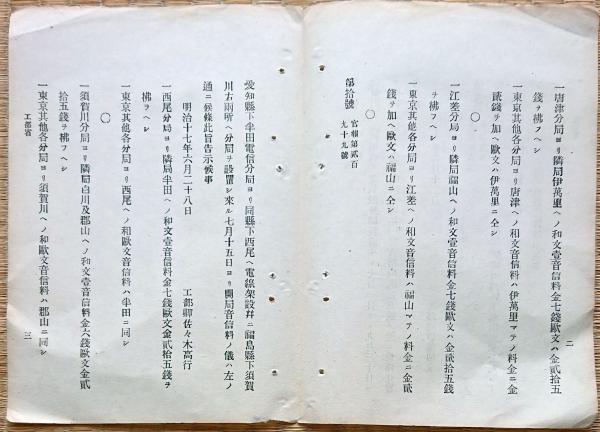 二
一唐津分局ヨリ隣局伊萬里ヘノ和文壹音信料金七錢歐文ハ金貳拾五
錢ヲ拂フヘシ
一東京其他各分局ヨリ唐津ヘノ和文音信料ハ伊萬里マテノ料金ニ金
貳錢ヲ加ヘ歐文ハ伊萬里ニ仝シ
〇
一江差分局ヨリ隣局福山ヘノ和文壹音信料金七錢歐文ハ金貳拾五錢
ヲ拂フヘシ
一東京其他各分局ヨリ江差ヘノ和文音信料ハ福山マテノ料金ニ金貳
錢ヲ加ヘ歐文ハ福山ニ仝シ
〇
第拾號 官報第貳百九十九號
愛知縣下半田電信分局ヨリ同縣下西尾ヘ電線架設幷ニ福島縣下須賀
川右兩所ヘ分局ヲ設置シ來ル七月十五日ヨリ開局音信料ノ儀ハ左ノ
通ニ候條此旨告示候事
明治十七年六月二十八日 工部卿佐々木高行
一西尾分局ヨリ隣局半田ヘノ和文壹音信料金七錢歐文金貳拾五錢ヲ
拂フヘシ
一東京其他各分局ヨリ西尾ヘノ和歐文音信料ハ半田ニ同シ
〇
一須賀川分局ヨリ隣局白川及郡山ヘノ和文壹音信料金六錢歐文金貳
拾五錢ヲ拂フヘシ
一東京其他各分局ヨリ須賀川ヘノ和歐文音信料ハ郡山ニ同シ
工部省 三